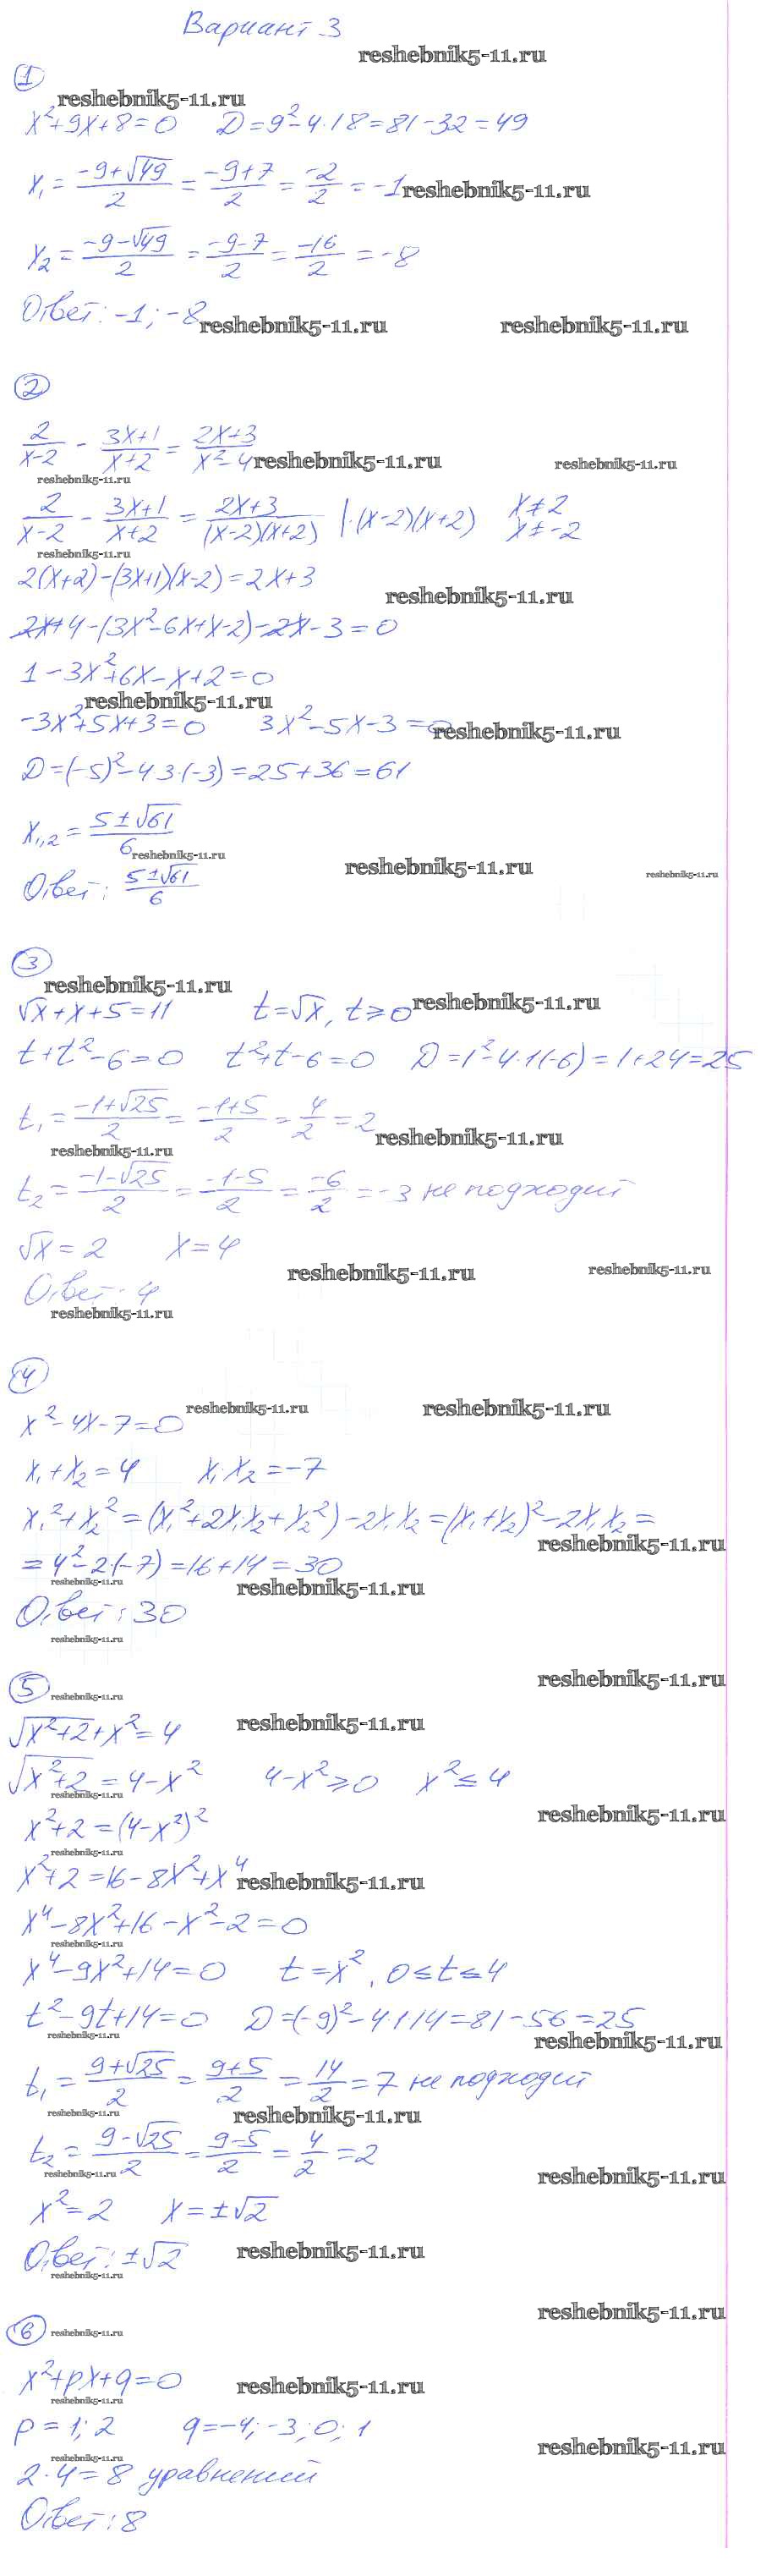 Вариант 3
reshebnik5-11.ru
1
reshebnik5-11.ru
x²+9x+8=0 D=9²-4·1·8=81-32=49
x₁=(-9+√49)/2=(-9+7)/2=-2/2=-1 reshebnik5-11.ru
x₂=(-9-√49)/2=(-9-7)/2=-16/2=-8
Ответ: -1; -8 reshebnik5-11.ru reshebnik5-11.ru
2
2/(x-2) - (3x+1)/(x+2) = (2x+3)/(x²-4) reshebnik5-11.ru reshebnik5-11.ru
reshebnik5-11.ru
2/(x-2) - (3x+1)/(x+2) = (2x+3)/((x-2)(x+2)) |·(x-2)(x+2) x≠2 x≠-2
reshebnik5-11.ru
2(x+2)-(3x+1)(x-2)=2x+3
reshebnik5-11.ru
2x+4-(3x²-6x+x-2)-2x-3=0
1-3x²+6x-x+2=0
reshebnik5-11.ru
-3x²+5x+3=0 3x²-5x-3=0 reshebnik5-11.ru
D=(-5)²-4·3·(-3)=25+36=61
x₁,₂=(5±√61)/6
reshebnik5-11.ru reshebnik5-11.ru reshebnik5-11.ru
Ответ: (5±√61)/6
3
reshebnik5-11.ru
√x+x+5=11 t=√x, t≥0 reshebnik5-11.ru
t+t²-6=0 t²+t-6=0 D=1²-4·1(-6)=1+24=25
t₁=(-1+√25)/2=(-1+5)/2=4/2=2 reshebnik5-11.ru
reshebnik5-11.ru
t₂=(-1-√25)/2=(-1-5)/2=-6/2=-3 не подходит
√x=2 x=4
reshebnik5-11.ru reshebnik5-11.ru
Ответ: 4
reshebnik5-11.ru
4
reshebnik5-11.ru reshebnik5-11.ru
x²-4x-7=0
x₁+x₂=4 x₁x₂=-7
x₁²+x₂²=(x₁²+2x₁x₂+x₂²)-2x₁x₂=(x₁+x₂)²-2x₁x₂=
reshebnik5-11.ru
=4²-2·(-7)=16+14=30
reshebnik5-11.ru reshebnik5-11.ru
Ответ: 30
reshebnik5-11.ru
reshebnik5-11.ru
5 reshebnik5-11.ru
√(x²+2)+x²=4 reshebnik5-11.ru
√(x²+2)=4-x² 4-x²≥0 x²≤4
reshebnik5-11.ru reshebnik5-11.ru
x²+2=(4-x²)²
reshebnik5-11.ru
x²+2=16-8x²+x⁴ reshebnik5-11.ru
x⁴-8x²+16-x²-2=0
reshebnik5-11.ru
x⁴-9x²+14=0 t=x², 0≤t≤4
t²-9t+14=0 D=(-9)²-4·1·14=81-56=25
reshebnik5-11.ru reshebnik5-11.ru
t₁=(9+√25)/2=(9+5)/2=14/2=7 не подходит
reshebnik5-11.ru reshebnik5-11.ru
t₂=(9-√25)/2=(9-5)/2=4/2=2
reshebnik5-11.ru reshebnik5-11.ru
x²=2 x=±√2
Ответ: ±√2 reshebnik5-11.ru
reshebnik5-11.ru
reshebnik5-11.ru
6 reshebnik5-11.ru
x²+px+q=0 reshebnik5-11.ru
reshebnik5-11.ru
p=1; 2 q=-4; -3; 0; 1
reshebnik5-11.ru
reshebnik5-11.ru
2·4=8 уравнений
Ответ: 8